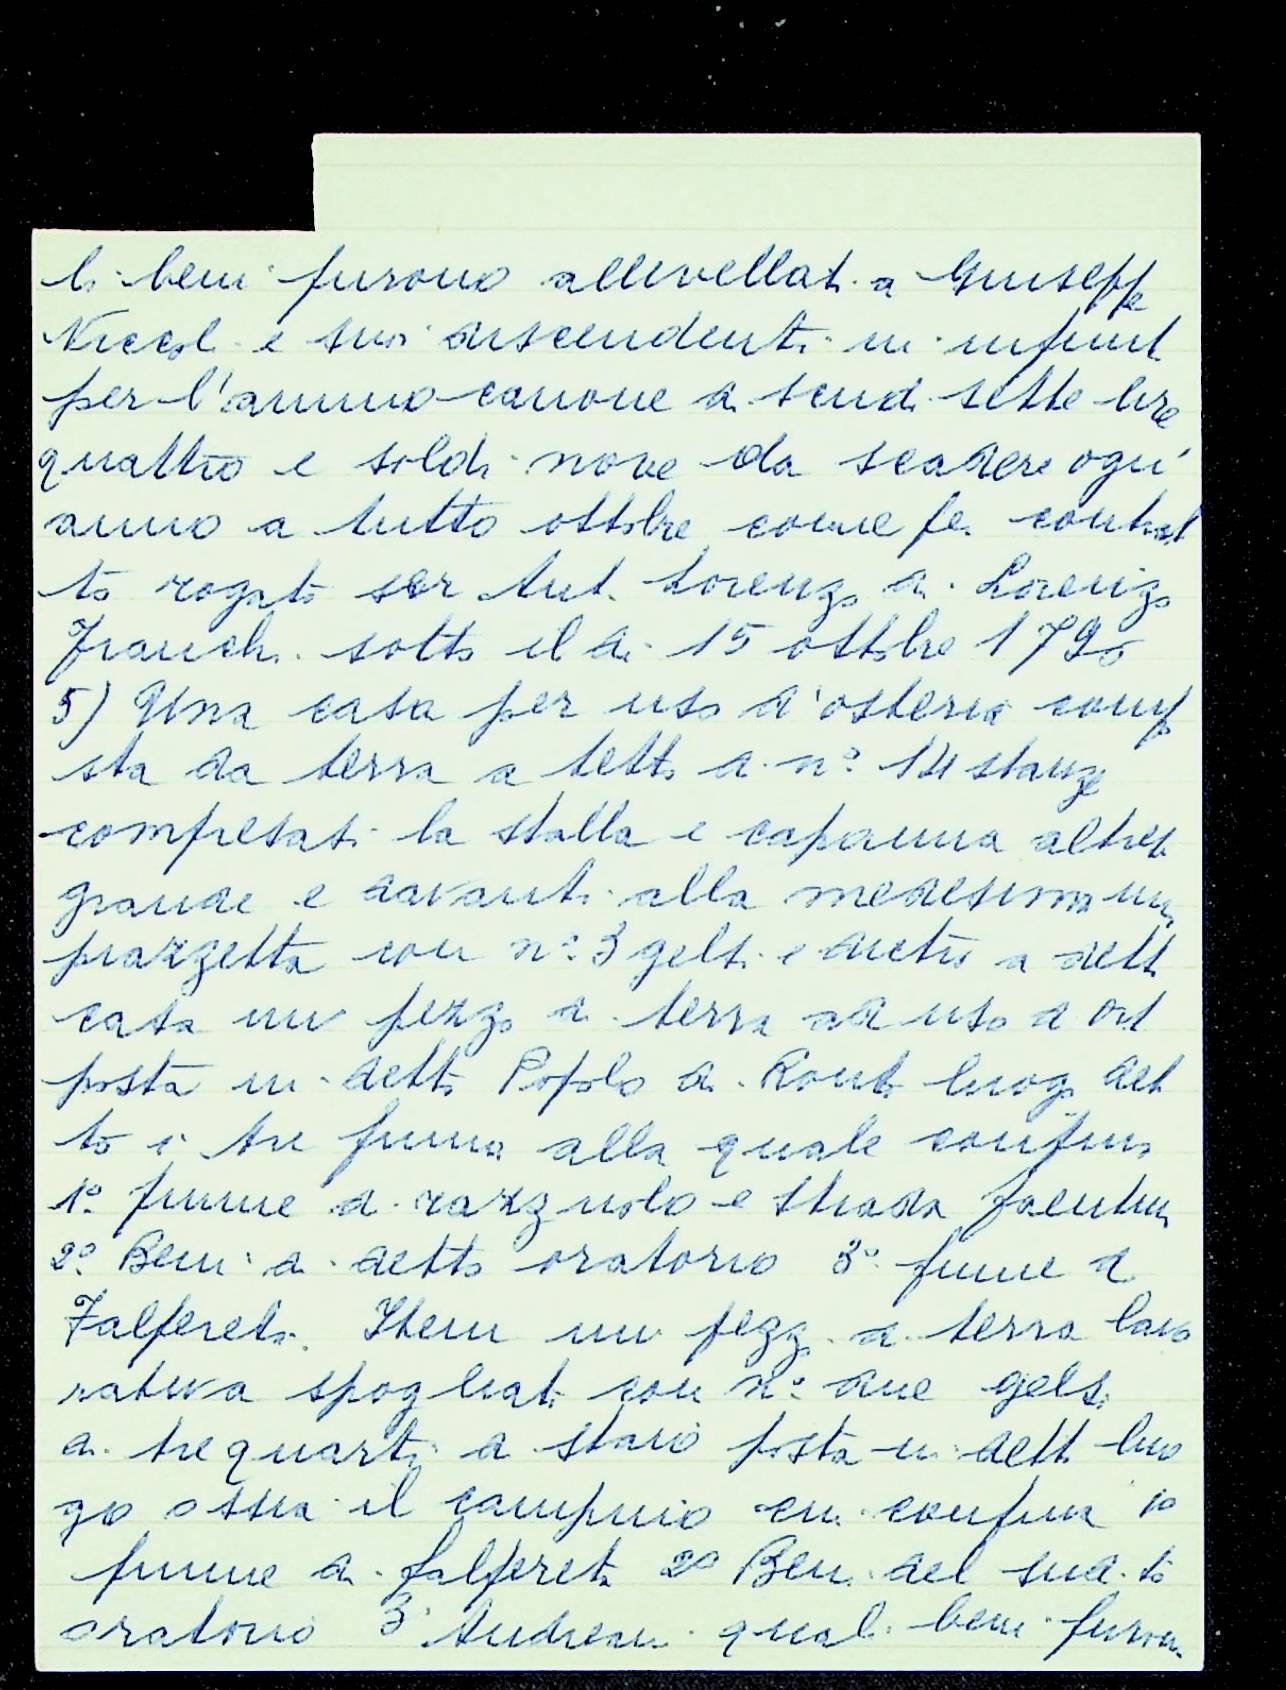 li beni furono allivellati a Giuseppe
Niccol e suoi discendenti in infinit
per l'annuo canone di scudi sette lire
quattro e soldi nove da scadere ogni
anno a tutto ottobre come per contrat
to rogato ser Ant. Lorenzo di Lorenzo
Franchi sotto il di 15 ottobre 1795
5) Una casa per uso d'osteria compo
sta da terra a tetto di n.° 14 stanze
compresavi la stalla e capanna altresi
grande e davanti alla medesima una
piazzetta con n.° 3 gelsi e dietro a dett
casa un pezzo di terra ad uso d'ort
posta in detto Popolo di Ronta luogo det
to i tre fiumi alla quale confina
1.° fiume di razzuolo e strada faentina
2.° Beni di detto oratorio 3.° fiume di
Falfereto. Item un pezzo di terra lavo
rativa spogliata con n.° due gelsi
di tre quarti di staio posta in dett luo
go ossia il campino cui confina 1°
fiume di falfereto 2° Beni del sud.to
oratorio 3° Andreani quali beni furon